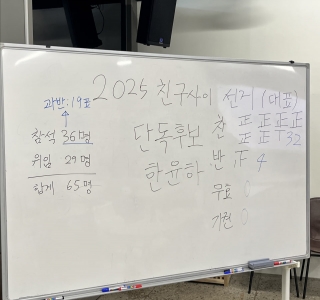 2025 친구사이 선거 (대표)
과반:19표
↑
참석 36명
위임 29명
합계 65명
단독후보
한윤하
찬 正 正 正 正
正 正 T 32
반 正 4
무효 0
기권 0